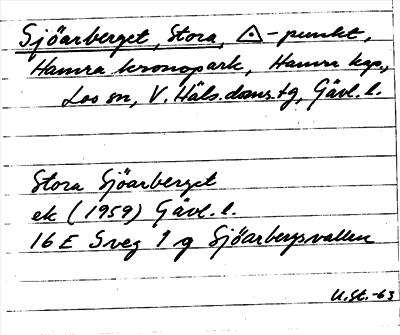 Sjöarberget, Stora, △-punkt,
Hamra kronopark, Hamra kap.,
Loo sn, V. Häls. doms. tg, Gävl. l.
Stora Sjöarberget
ek (1959) Gävl. l.
16 E Sveg 1 g Sjöarbergsvallen
U.St.-63